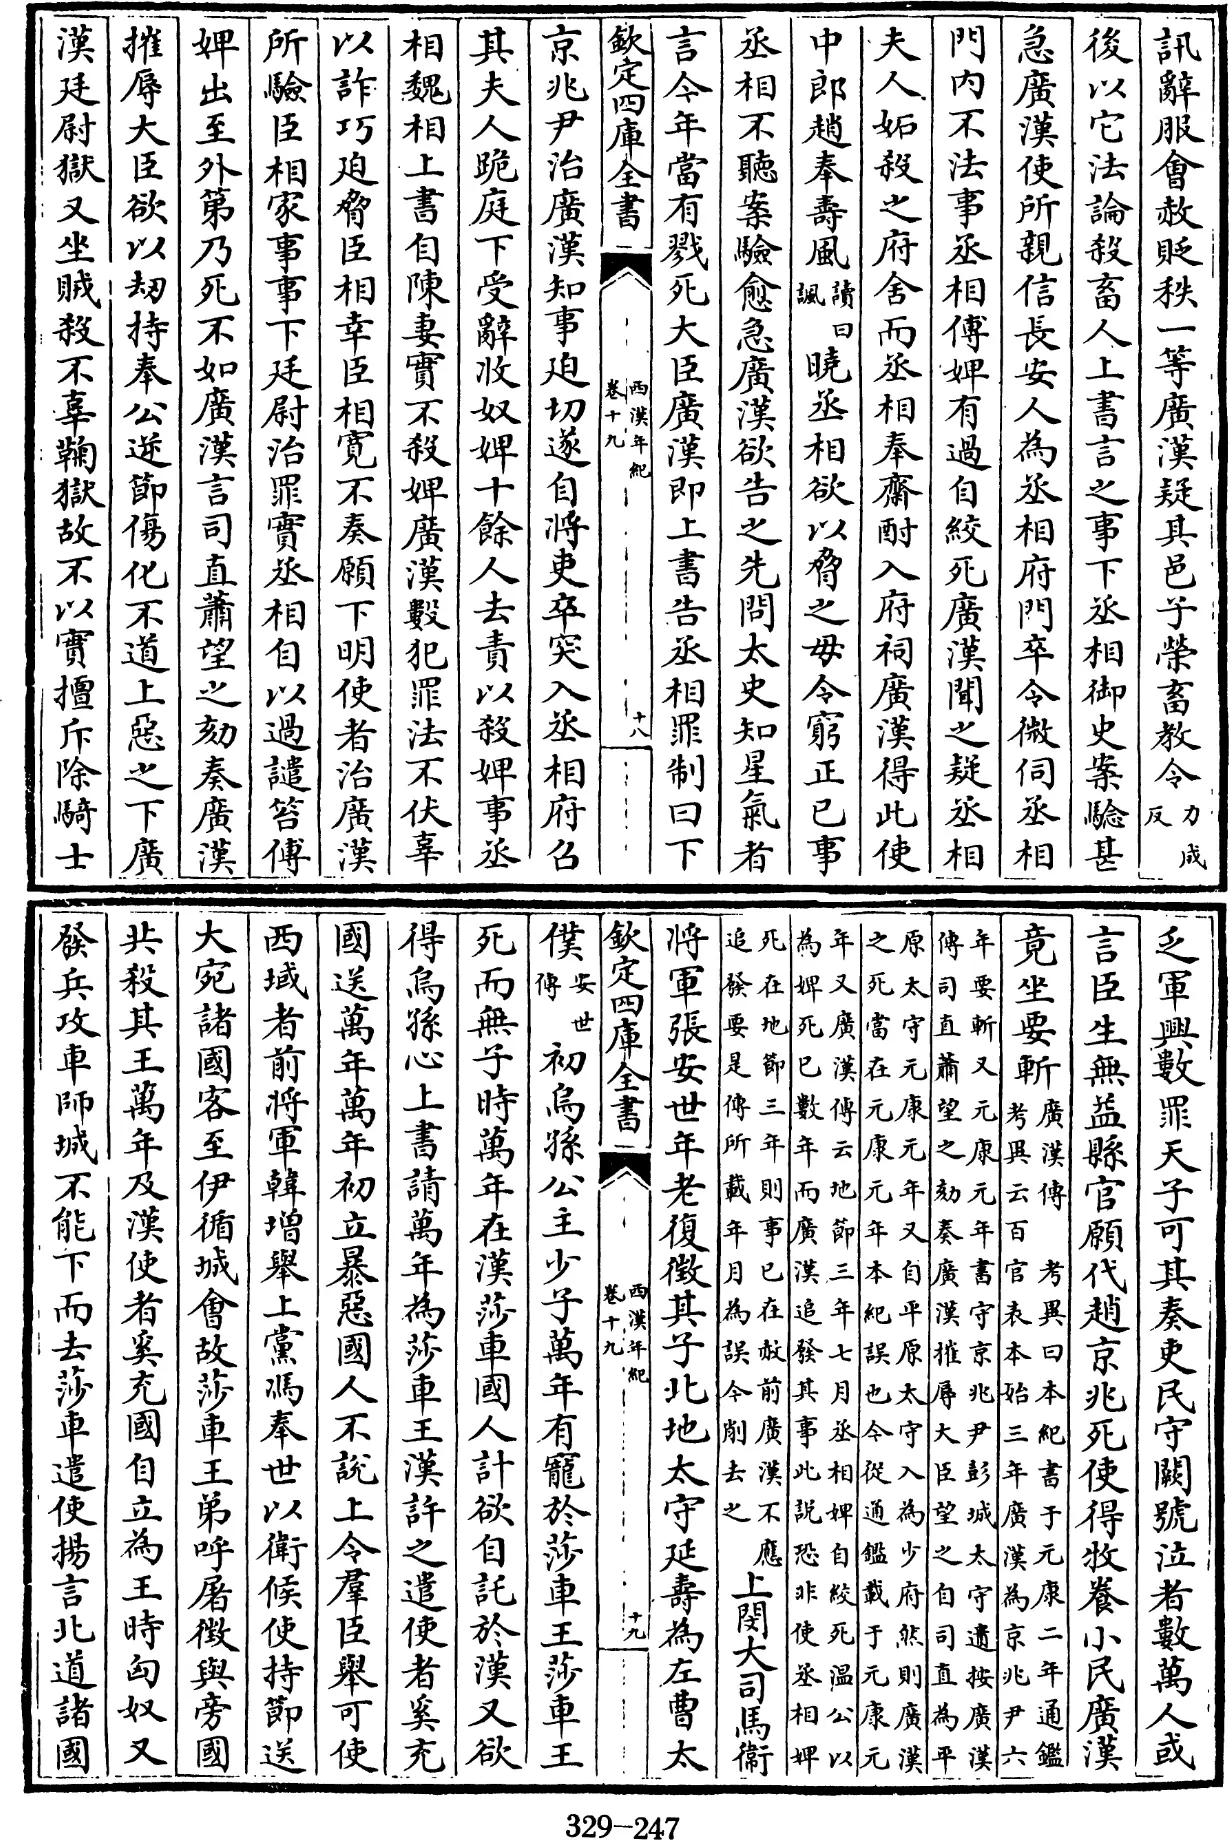 訊辭服會赦貶秩一等廣漢疑其邑子榮畜教令力成反
後以它法論殺畜人上書言之事下丞相御史案驗甚
急廣漢使所親信長安人為丞相府門卒令微伺丞相
門内不法事丞相傅婢有過自絞死廣漢聞之疑丞相
夫人妬殺之府舍而丞相奉齋酎入府祠廣漢得此使
中郎趙奉壽風讀曰諷曉丞相欲以脅之毋令窮正已事
丞相不聽案驗愈急廣漢欲告之先問太史知星氣者
言今年當有戮死大臣廣漢即上書告丞相罪制曰下
欽定四庫全書 西漢年紀 卷十九 十八
京兆尹治廣漢知事迫切遂自將吏卒突入丞相府召
其夫人跪庭下受辭收奴婢十餘人去責以殺婢事丞
相魏相上書自陳妻實不殺婢廣漢數犯罪法不伏辜
以詐巧迫脅臣相幸臣相寛不奏願下明使者治廣漢
所驗臣相家事事下廷尉治罪實丞相自以過譴笞傅
婢出至外第乃死不如廣漢言司直蕭望之劾奏廣漢
摧辱大臣欲以刼持奉公逆節傷化不道上惡之下廣
漢廷尉獄又坐賊殺不辜鞠獄故不以實擅斥除騎士
乏軍興數罪天子可其奏吏民守闕號泣者數萬人或
言臣生無益縣官願代趙京兆死使得牧養小民廣漢
竟坐要斬廣漢傳 考異曰本紀書于元康二年通鑑考異云百官表本始三年廣漢為京兆尹六
年要斬又元康元年書守京兆尹彭城太守遺按廣漢傳司直蕭望之劾奏廣漢摧辱大臣望之自司直為平
原太守元康元年又自平原太守入為少府然則廣漢之死當在元康元年本紀誤也今從通鑑載于元康元
年又廣漢傳云地節三年七月丞相婢自絞死温公以為婢死已數年而廣漢追發其事此説恐非使丞相婢
死在地節三年則事已在赦前廣漢不應追發要是傳所載年月為誤今削去之上閔大司馬衞
將軍張安世年老復徵其子北地太守延壽為左曹太
欽定四庫全書 西漢年紀 卷十九 十九
僕安世傳初烏孫公主少子萬年有寵於莎車王莎車王
死而無子時萬年在漢莎車國人計欲自託於漢又欲
得烏孫心上書請萬年為莎車王漢許之遣使者奚充
國送萬年萬年初立暴惡國人不説上令羣臣舉可使
西域者前將軍韓增舉上黨馮奉世以衞候使持節送
大宛諸國客至伊循城會故莎車王弟呼屠徵與旁國
共殺其王萬年及漢使者奚充國自立為王時匈奴又
發兵攻車師城不能下而去莎車遣使揚言北道諸國
329-247